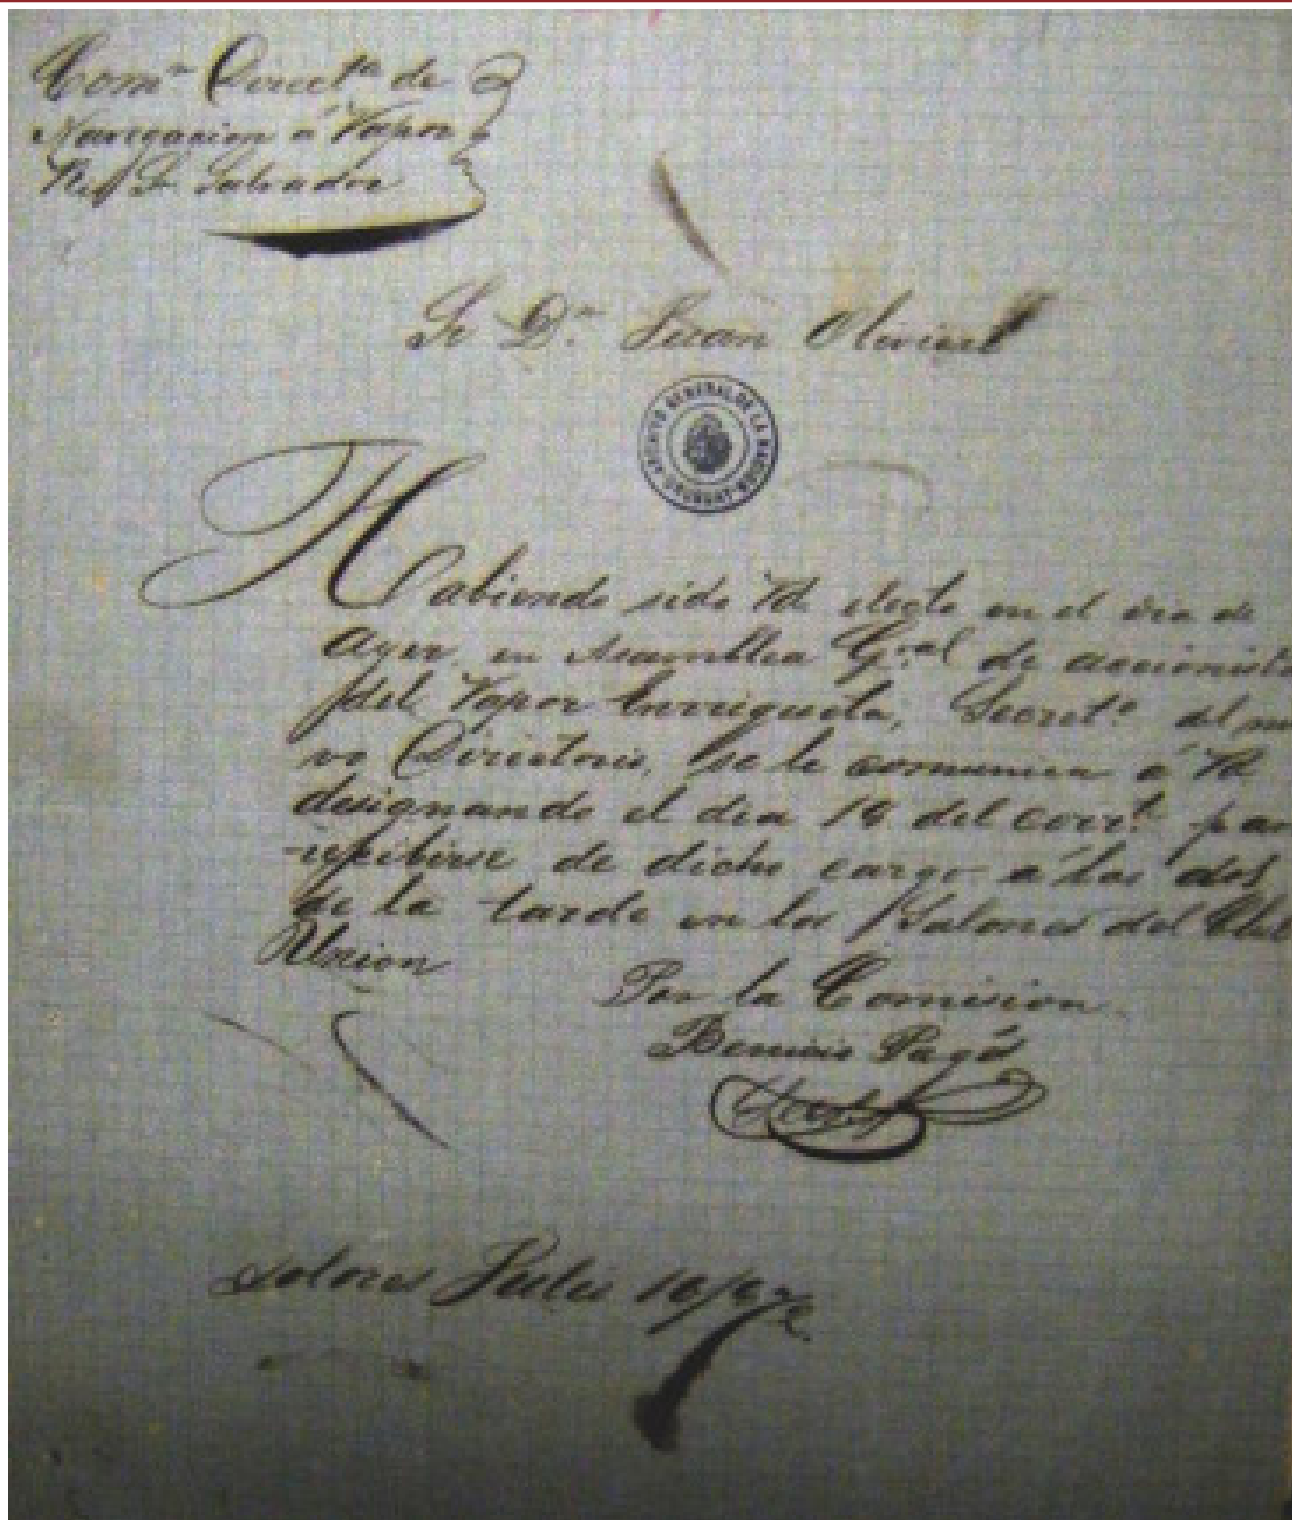 Com.n Direct.a de
Navegacion á Vapor
Rio S. Salvador
Sr D.n Juan
ARCHIVO GENERAL DE LA NACION
URUGUAY
Habiendo sido Vd. electo en el dia de
Ayer, en Asamblea G.ral de accionista
del Vapor Enriqueta, Secret.o del nue
vo Directorio, se le comunica á Vd
designando el dia 18 del corr.te par
recibirse de dicho cargo á las dos
de la tarde en los Salones del Club
Union
Por la Comision
Pagés
Dolores Julio 16